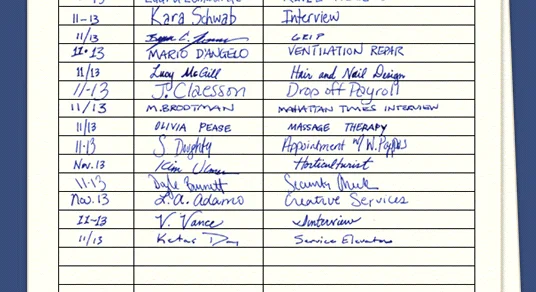 11-13 Kara Schwab Interview
11/13 GRIP
11-13 MARIO D'ANGELO VENTILATION REPAR
11/13 Lucy McGill Hair and Nail Design
11-13 J. Claesson Drop off Payroll
11/13 M. BRODTMAN MAHATTAN TIMES INTERVIEW
11/13 OLIVIA PEASE MASSAGE THERAPY
11-13 S Doughty Appointment w/ W. Peppes
Nov. 13 Kim Horticulturist
11-13 Dayle Security
Nov. 13 L.A. Adamo Creative Services
11-13 V. Vance Interview
11/13 Service Elevators